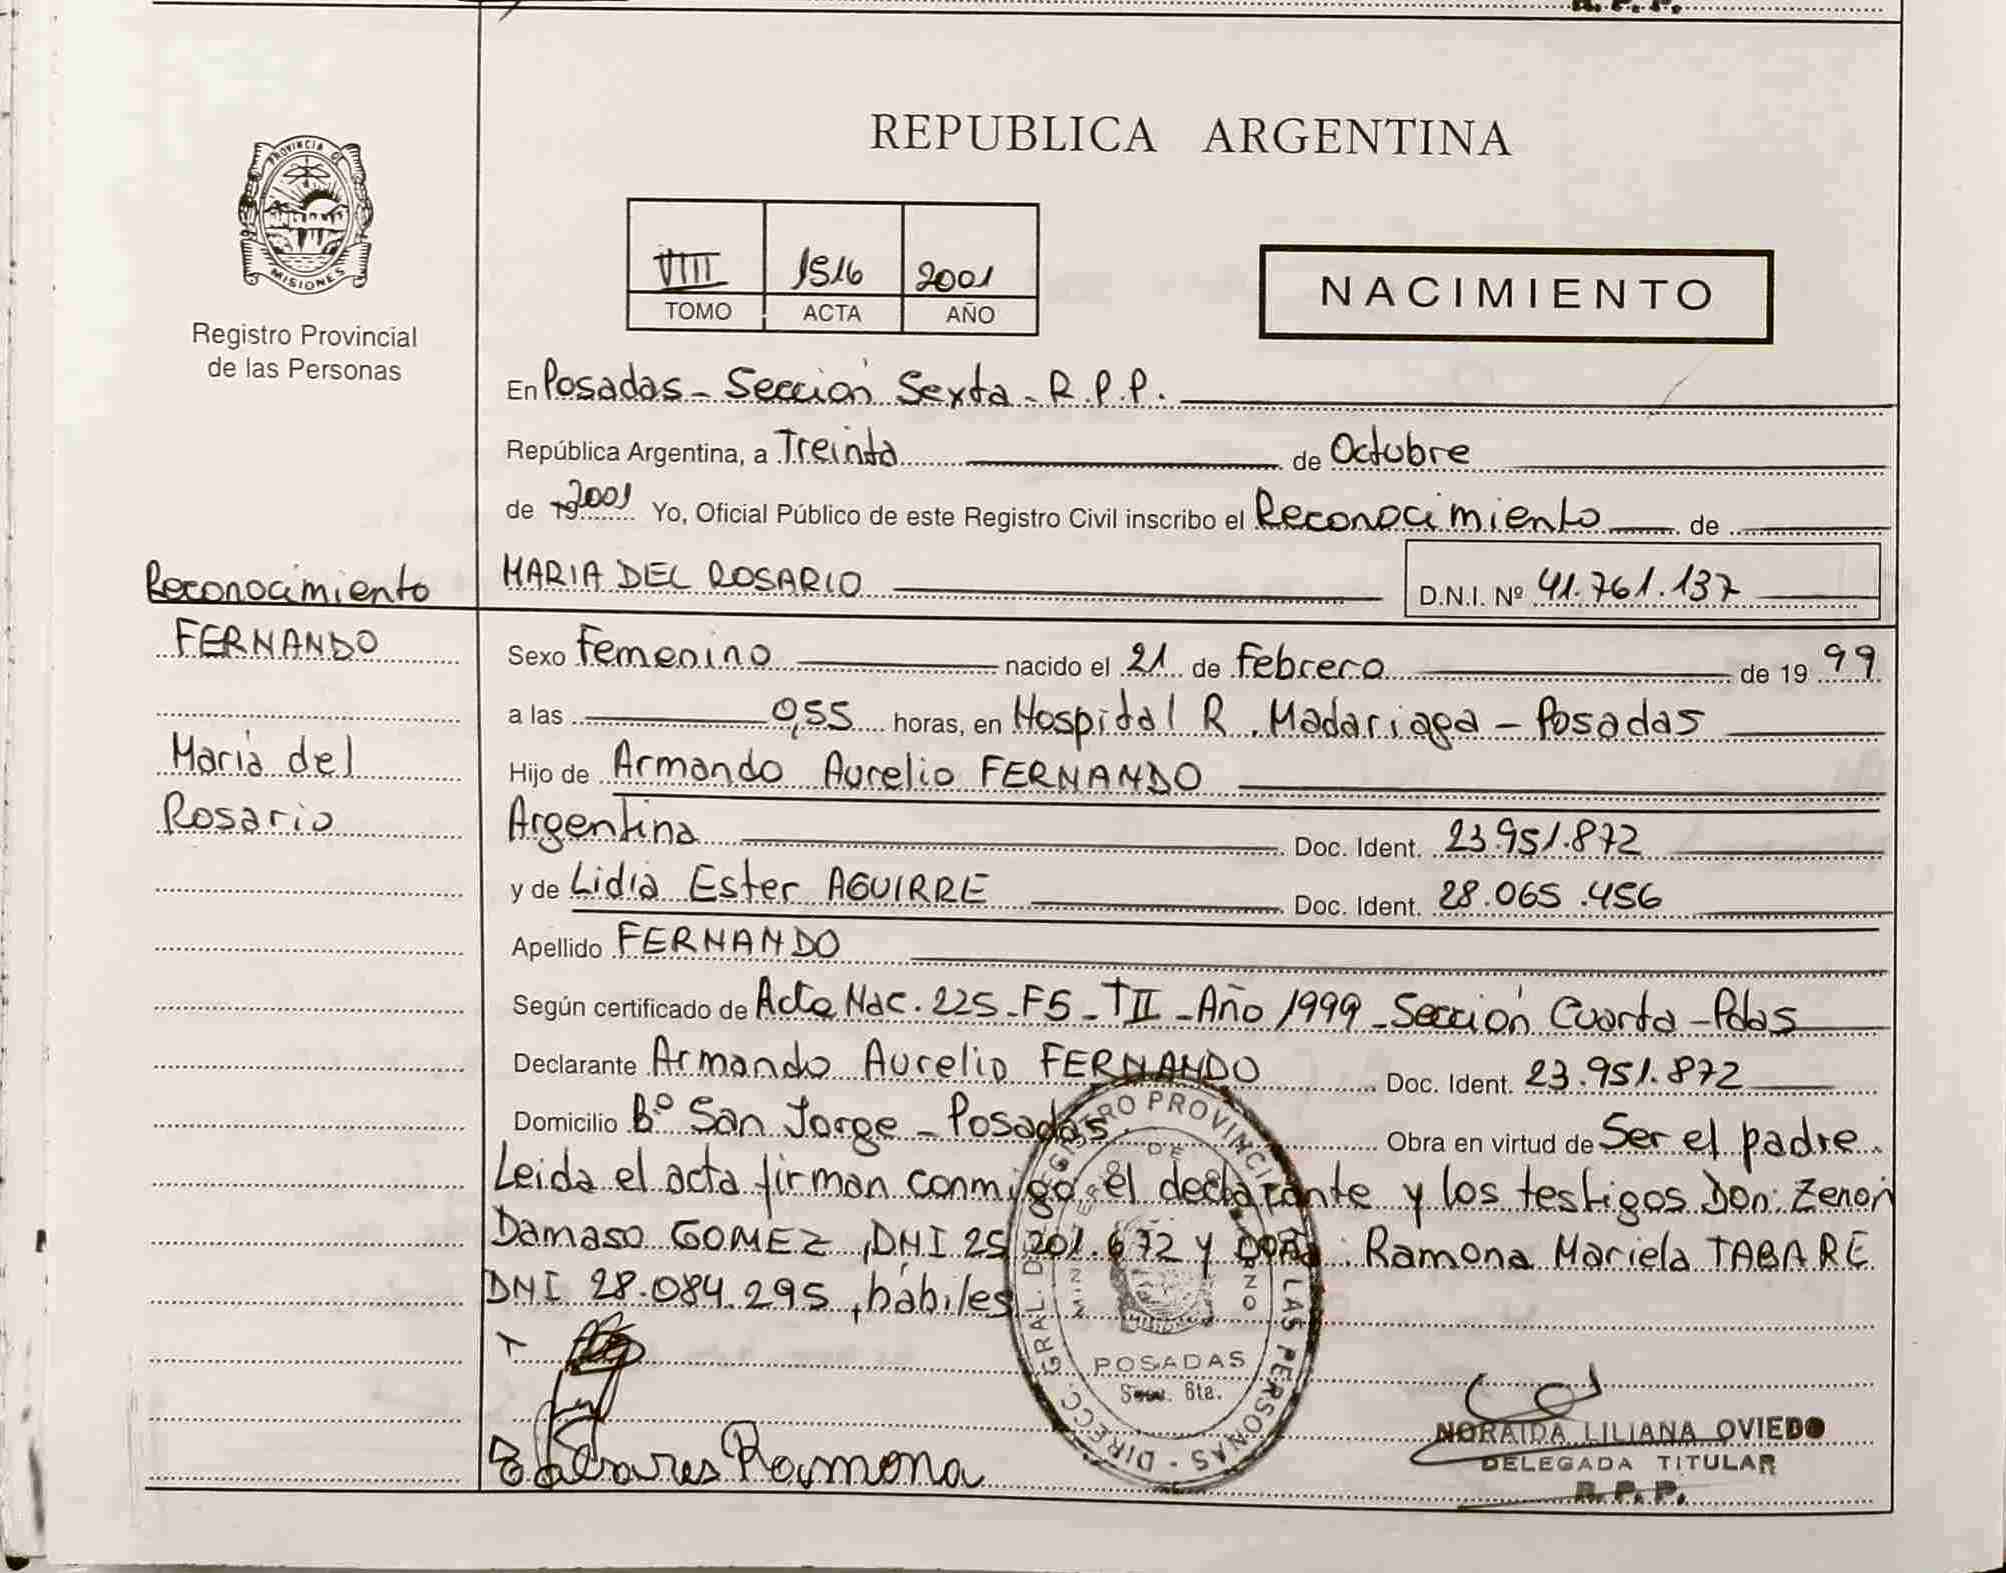 R. P. P.
REPUBLICA ARGENTINA
PROVINCIA DE
MISIONES
Registro Provincial
de las Personas
VIII 1516 2001
TOMO ACTA AÑO
NACIMIENTO
En Posadas - Sección Sexta - R.P.P.
República Argentina, a Treinta de Octubre
de 19 2001 Yo, Oficial Público de este Registro Civil inscribo el Reconocimiento de
MARIA DEL ROSARIO D.N.I. Nº 41.761.137
Reconocimiento
FERNANDO
María del
Rosario
Sexo Femenino nacido el 21 de Febrero de 19 99
a las 0,55 horas, en Hospital R. Madariaga - Posadas
Hijo de Armando Aurelio FERNANDO
Argentina Doc. Ident. 23.951.872
y de Lidia Ester AGUIRRE Doc. Ident. 28.065.456
Apellido FERNANDO
Según certificado de Acta Nac. 225 - F5 - TII - Año 1999 - Sección Cuarta - Pdas
Declarante Armando Aurelio FERNANDO Doc. Ident. 23.951.872
Domicilio Bº San Jorge - Posadas. Obra en virtud de Ser el padre.
Leida el acta firman conmigo, el declarante y los testigos Don: Zenon
Damaso GOMEZ, DNI 25.201.672 y Doña: Ramona Mariela TABARE
DNI 28.084.295, hábiles
DIRECC. GRAL. DE REGISTRO PROVINCIAL DE LAS PERSONAS
POSADAS
Secc. 6ta.
Ramona
NORAIDA LILIANA OVIEDO
DELEGADA TITULAR
R. P. P.